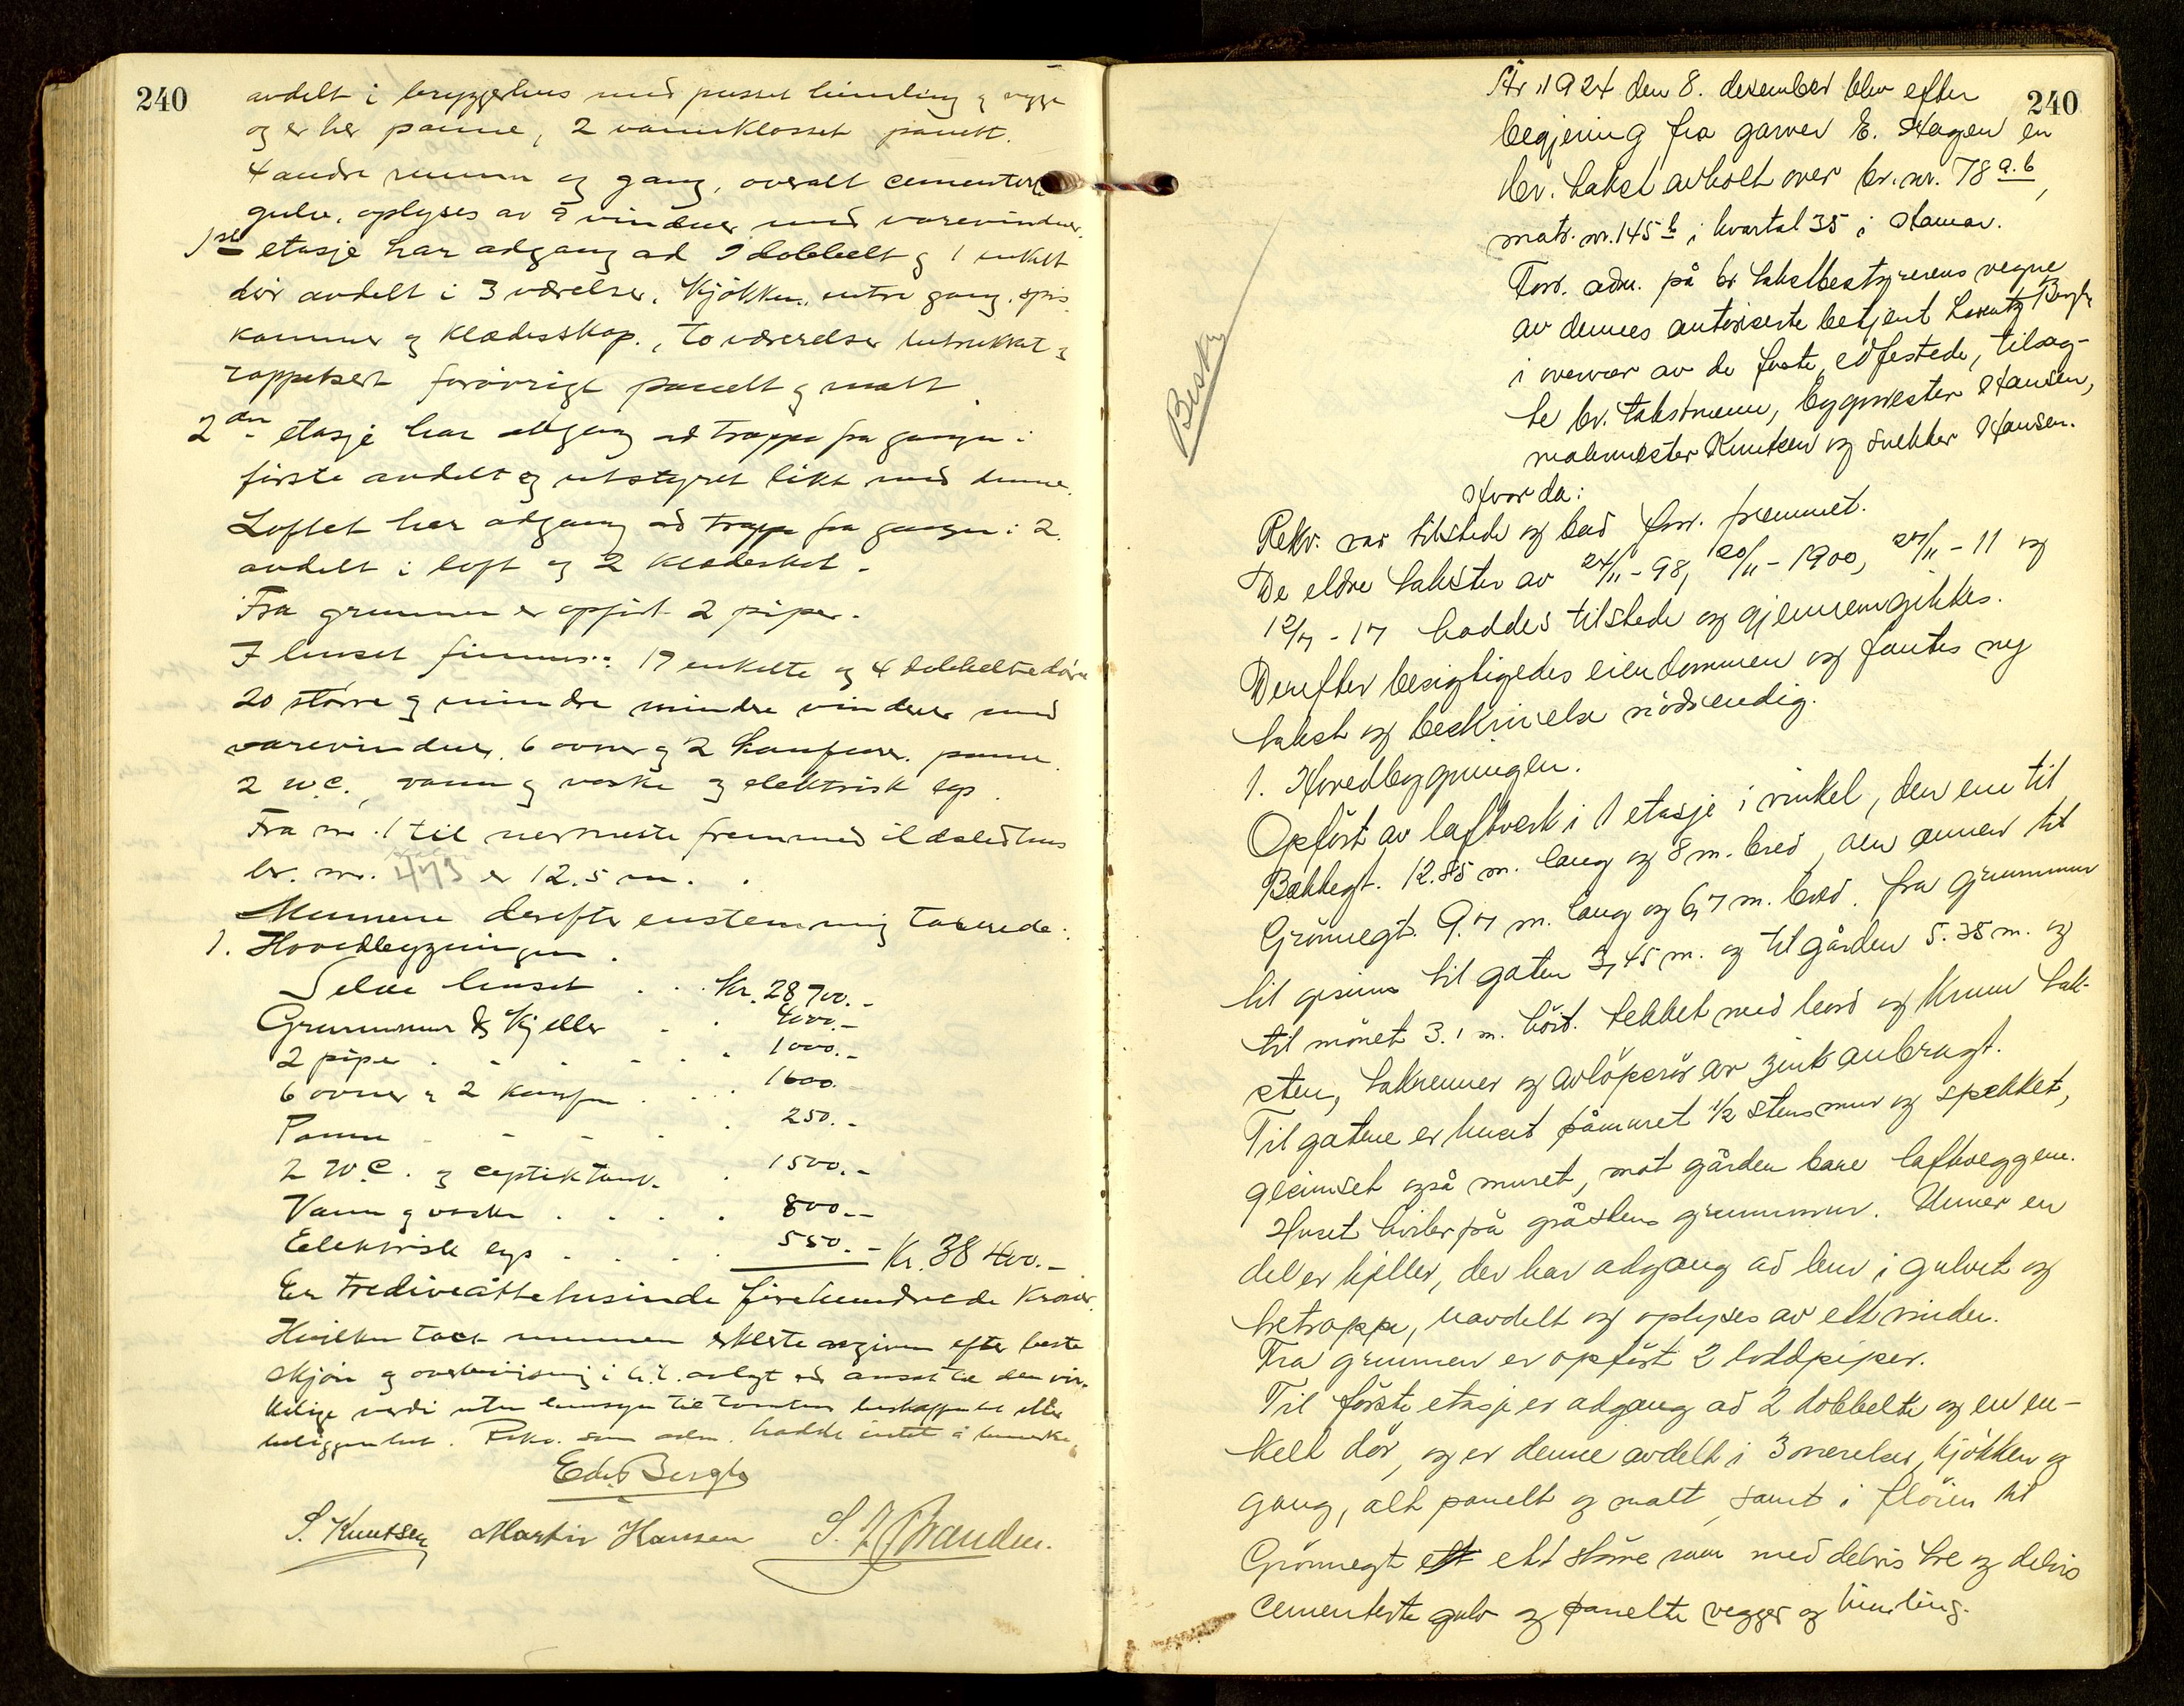 240
avdelt i bryggerhus med pusset himling g vegge
og er her panne, 2 vannklosset panelt.
4 andre rumm og gang, overalt cementert
gulv. oplyses av 9 vinduer med varevinduer.
1ste etasje har adgang ad 2 dobbelt g 1 enkelt
dør avdelt i 3 værelser, kjøkken, entre gang, spis
kammer g klædesskap., to værelser betrukket g
tappetsert forøvrigt panelt g malt.
2den etasje har adgang ad trappe fra gangen i
første avdelt og utstyret likt med denne.
Loftet har adgang ad trappe fra gangen i 2.
avdelt i loft og 2 klædeskot.
Fra grunnen er opført 2 piper.
I huset finnes: 17 enkelte og 4 dobbelte døre
20 større g mindre mindre vinduer med
varevinduer, 6 ovner g 2 komfurer. panne
2 W.C., vann g vaske g elektrisk lys.
Fra nr. 1 til nermeste fremmed ildsledhus
br. nr. 473 er 12.5 m.
Mennene derefter enstemmig taxerede:
1. Hovedbygningen.
Selve huset . . Kr. 28,700.-
Grunnmur & Kjeller . . 4000.-
2 piper . . . . . 1000.-
6 ovner g 2 komfur . . . 1600.
Panne . . . . 250.-
2 W.C. g ceptiktank . 1500.-
Vann g vaske . . . . 800.-
Elektrisk lys . . . . 550.- Kr. 38 400.-
Er Trediveåttetusinde firehundrede Kroner.
Hvilken taxt mennene erklærte avgiven efter beste
skjøn g overbevisning i h.t. avlagt ed ansat til den vir-
kelige verdi uten hensyn til tomtens beskaffenhet eller
beliggenhet. Rekv. som adm. hadde intet å bemerke.
Edv. Bergh
S. Knutsen Martin Hansen S. J. Stranden.
240
År 1924 den 8. desember blev efter
begjering fra garver E. Hagen en
br. takst avholt over br. nr. 78 a.b,
matr. nr. 145 b i kvartal 35 i Hamar.
Forr. adm. på br takstbestyrerens vegne
av dennes autoriserte betjent Lorentz Bergh
i overvær av de faste, edfestede, tilsag-
te br. takstmenn, bygmester Hansen,
malermester Knutsen og snekker Hansen.
Hvor da:
Beskr
Rekv. var tilstede og bad forr. fremmet.
De eldre takster av 24/11-98, 20/11-1900, 27/11-11 og
12/7-17 haddes tilstede og gjennemgikkes.
Derefter besigtigedes eiendommen og fantes ny
takst og beskrivelse nødvendig.
1. Hovedbygningen.
Opført av laftverk i 1 etasje i vinkel, den ene til
Bækkegt. 12.85 m. lang og 8 m. bred, den annen til
Grønnegt. 9.7 m. lang og 6,7 m. bred. fra grunnmur
til gesims til gaten 3,45 m. og til gården 5.35 m. og
til mønet 3.1 m. høit. tekket med bord og krum tak-
sten, takrenner og avløpsrør av zink anbragt.
Til gatene er huset påmuret 1/2 stens mur og spekket,
gesimset også muret, mot gården bare laftveggene.
Huset hviler på gråstens grunnmur. Unner en
del er kjeller, der har adgang ad lem i gulvet og
tretrappe, uavdelt og oplyses av ett vindu.
Fra grunnen er opført 2 loddpiper.
Til første etasje er adgang ad 2 dobbelte og en en-
kelt dør, og er denne avdelt i 3 værelser, kjøkken og
gang, alt panelt og malt, samt i fløien til
Grønnegt ett større rum med delvis tre og delvis
cementerte gulv og panelte vegger og himling.